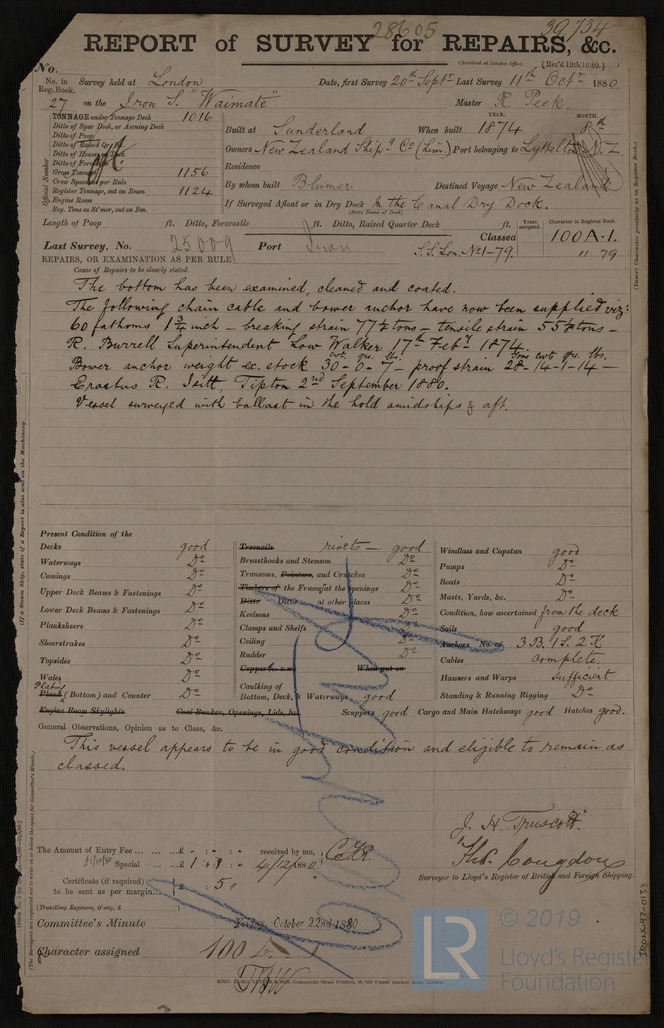 28605 39/34
REPORT of SURVEY for REPAIRS, &c.
(Received at London Office, (Rev'd 19th/10.80.)
No.
No. in Reg. Book. Survey held at London Date, first Survey 20th Septr Last Survey 11th Octr 1880
27 on the Iron S. "Waimate" Master R Peek
TONNAGE under Tonnage Deck 1016
Ditto of Spar Deck, or Awning Deck
Ditto of Poop
Ditto of Raised Qr. Dk.
Ditto of House on Deck
Ditto of Forecastle
Gross Tonnage 1156
Crew Space as per Rule
Register Tonnage, cut on Beam 1124
Engine Room
Reg. Tons as St'mer, cut on Bm.
Official Number
YEAR. MONTH.
Built at Sunderland When built 1874 8th
Owners New Zealand Ship.g Co (Lim.) Port belonging to Lyttelton N.Z
Residence
By whom built Blumer Destined Voyage New Zealand
If Surveyed Afloat or in Dry Dock In the Canal Dry Dock.
(State Name of Dock)
(Insert Character precisely as in Register Book.)
Length of Poop ft. Ditto, Forecastle ft. Ditto, Raised Quarter Deck ft.
Years assigned. Character in Register Book.
Classed 100A.1.
Last Survey, No. 25009 Port Iron S.S. Lon. No1-79. 11.79
REPAIRS, OR EXAMINATION AS PER RULE
Cause of Repairs to be clearly stated.
The bottom has been examined, cleaned and coated.
The following chain cable and bower anchor have now been supplied viz:
60 fathoms 1 3/4 inch - breaking strain 77 1/8 tons - tensile strain 55 1/8 tons -
R. Burrell Superintendent Low Walker 17th Feby 1874.
cwt. qrs. lbs. tons cwt qrs. lbs.
Bower anchor weight ex. stock 30-0-7- proof strain 28-14-1-14-
Erastus R. Isitt, Tipton 2nd September 1880.
Vessel surveyed with ballast in the hold amidships & aft.
(If a Steam Ship, state if a Report is also sent on the Machinery.
Present Condition of the
Decks good
Waterways Do
Comings Do
Upper Deck Beams & Fastenings Do
Lower Deck Beams & Fastenings Do
Planksheers Do
Sheerstrakes Do
Topsides Do
Wales Do
Plating
Plank (Bottom) and Counter Do
Engine Room Skylights Coal Bunker, Openings, Lids, &c.
Treenails rivets - good
Breasthooks and Stemson Do
Transoms, Pointers, and Crutches Do
Timbers of the Frames at the openings Do
Ditto Ditto at other places Do
Keelsons Do
Clamps and Shelfs Do
Ceiling Do
Rudder Do
Copper When put on
Caulking of
Bottom, Deck, & Waterways good
Scuppers good Cargo and Main Hatchways good Hatches good.
Windlass and Capstan good
Pumps Do
Boats Do
Masts, Yards, &c. Do
Condition, how ascertained from the deck
Sails good
Anchors No. of 3 B. 1 S. 2 K
Cables complete.
Hawsers and Warps sufficient
Standing & Running Rigging Do
General Observations, Opinion as to Class, &c.
This vessel appears to be in good condition and eligible to remain as
classed.
The Amount of Entry Fee ... ...£ : : received by me,
Special ... ...£ 1 : 1 : 4/12/1880
Certificate (if required) ...£ : 5 :
to be sent as per margin
(Travelling Expenses, if any, £ )
J. H. Truscott.
Thos. Congdon
Surveyor to Lloyd's Register of British and Foreign Shipping.
Committee's Minute Friday, October 22nd 1880
Character assigned 100
LR
© 2019
Lloyd's Register
Foundation